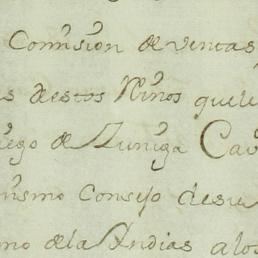 Comission de ventas
destos Niños que le
iego de Zuniga Cav
mismo Consejo de su
mo de la Yndias a los